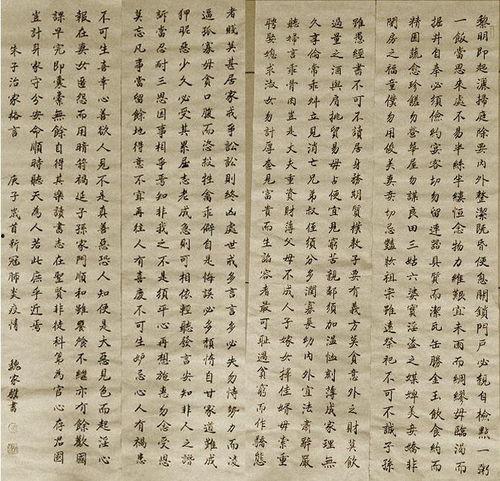 黎明即起灑掃庭除要內外整潔既昏便息關鎖門戶必親自檢點一粥
一飯當思來處不易半絲半縷恆念物力維艱宜未雨而綢繆毋臨渴而
掘井自奉必須儉約宴客切勿留連器具質而潔瓦缶勝金玉飲食約而
精園蔬愈珍饈勿營華屋勿謀良田三姑六婆實淫盜之媒婢美妾嬌非
閨房之福童僕勿用俊美妻妾切忌豔妝祖宗雖遠祭祀不可不誠子孫
雖愚經書不可不讀居身務期質樸教子要有義方莫貪意外之財莫飲
過量之酒與肩挑貿易毋占便宜見窮苦親鄰須加溫恤刻薄成家理無
久享倫常乖舛立見消亡兄弟叔侄須分多潤寡長幼內外宜法肅辭嚴
聽婦言乖骨肉豈是丈夫重資財薄父母不成人子嫁女擇佳婿毋索重
聘娶媳求淑女勿計厚奩見富貴而生諂容者最可恥遇貧窮而作驕態
者賤莫甚居家戒爭訟訟則終凶處世戒多言言多必失勿恃勢力而凌
逼孤寡毋貪口腹而恣殺牲禽乖僻自是悔誤必多頹惰自甘家道難成
狎昵惡少久必受其累屈志老成急則可相依輕聽發言安知非人之譖
訴當忍耐三思因事相爭焉知非我之不是須平心再想施惠勿念受恩
莫忘凡事當留餘地得意不宜再往人有喜慶不可生妒忌心人有禍患
不可生喜幸心善欲人見不是真善惡恐人知便是大惡見色而起淫心
報在妻女匿怨而用暗箭禍延子孫家門和順雖饔飧不繼亦有餘歡國
課早完即囊橐無餘自得其樂讀書志在聖賢非徒科第為官心存君國
豈計身家守分安命順時聽天為人若此庶乎近焉
朱子治家格言 庚子歲首新冠肺炎疫情 魏家書